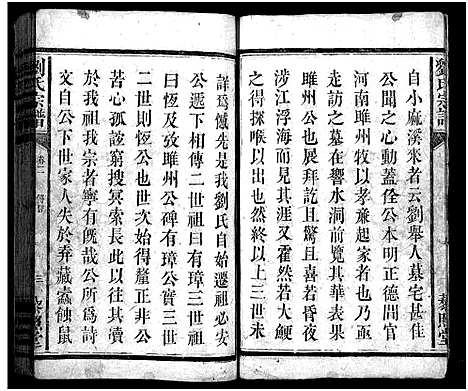 劉氏宗譜
自小麻溪來者云劉舉人墓宅甚佳
公聞之心動蓋佺公本明正德間官
河南睢州牧以孝廉起家者也於是
走訪之墓在響水洞前覽其華表果
睢州公也展拜訖且驚且喜若昏夜
涉江浮海而見其涯又霍然若大鯁
之得探喉以出也然此以上三世未
詳爲憾先是我劉氏自始遷祖必安
公遞下相傳二世祖曰有璋三世祖
曰恆至考證睢州公碑有璋公實三世
二世則恆公也世次始得釐正非公
苦心孤詣窮搜冥索長此以往其凟
於我祖我宗者寧有旣哉公所爲詩
文自公下世家人失於弆藏蟲蝕鼠
劉氏宗譜
卷二
三
黎照堂